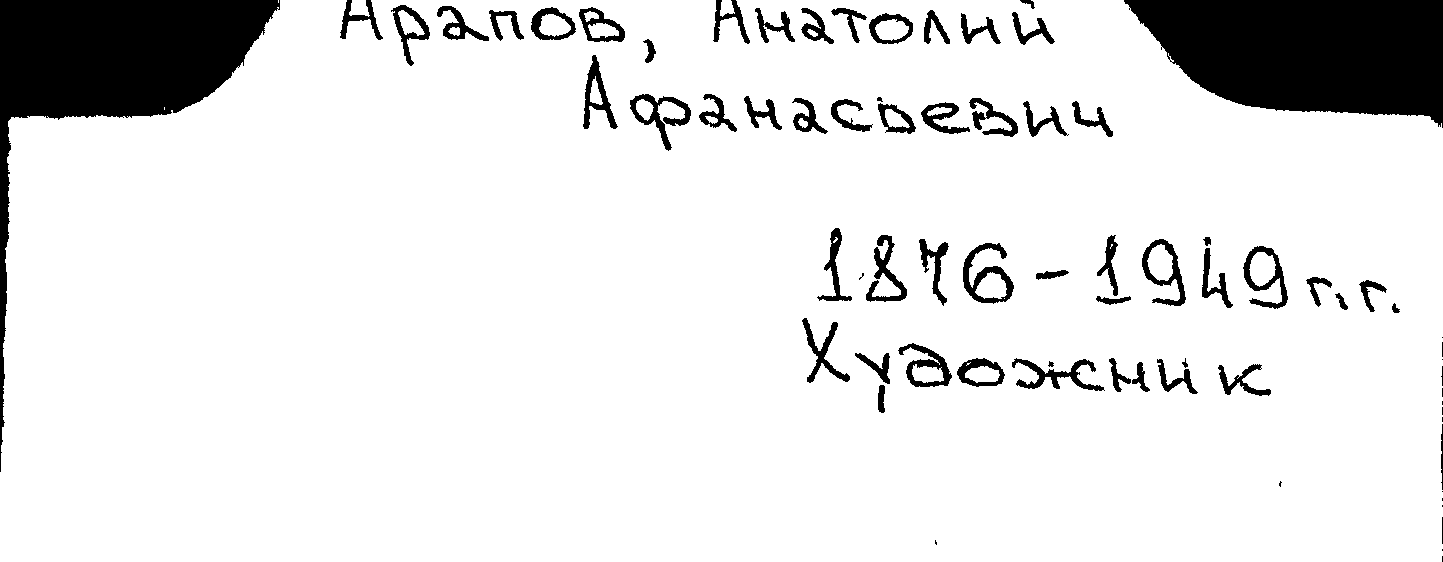 Арапов, Анатолий
Афанасьевич
1876-1949 г.г.
Художник